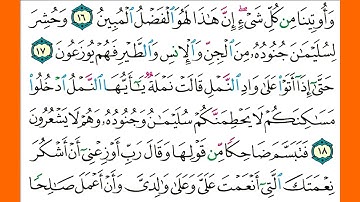 وَأُوتِينَا مِن كُلِّ شَيْءٍ إِنَّ هَٰذَا لَهُوَ ٱلْفَضْلُ ٱلْمُبِينُ ١٦ وَحُشِرَ
لِسُلَيْمَٰنَ جُنُودُهُۥ مِنَ ٱلْجِنِّ وَٱلْإِنسِ وَٱلطَّيْرِ فَهُمْ يُوزَعُونَ ١٧
حَتَّىٰٓ إِذَآ أَتَوْا۟ عَلَىٰ وَادِ ٱلنَّمْلِ قَالَتْ نَمْلَةٌ يَٰٓأَيُّهَا ٱلنَّمْلُ ٱدْخُلُوا۟
مَسَٰكِنَكُمْ لَا يَحْطِمَنَّكُمْ سُلَيْمَٰنُ وَجُنُودُهُۥ وَهُمْ لَا يَشْعُرُونَ
١٨ فَتَبَسَّمَ ضَاحِكًا مِّن قَوْلِهَا وَقَالَ رَبِّ أَوْزِعْنِىٓ أَنْ أَشْكُرَ
نِعْمَتَكَ ٱلَّتِىٓ أَنْعَمْتَ عَلَىَّ وَعَلَىٰ وَٰلِدَىَّ وَأَنْ أَعْمَلَ صَٰلِحًا